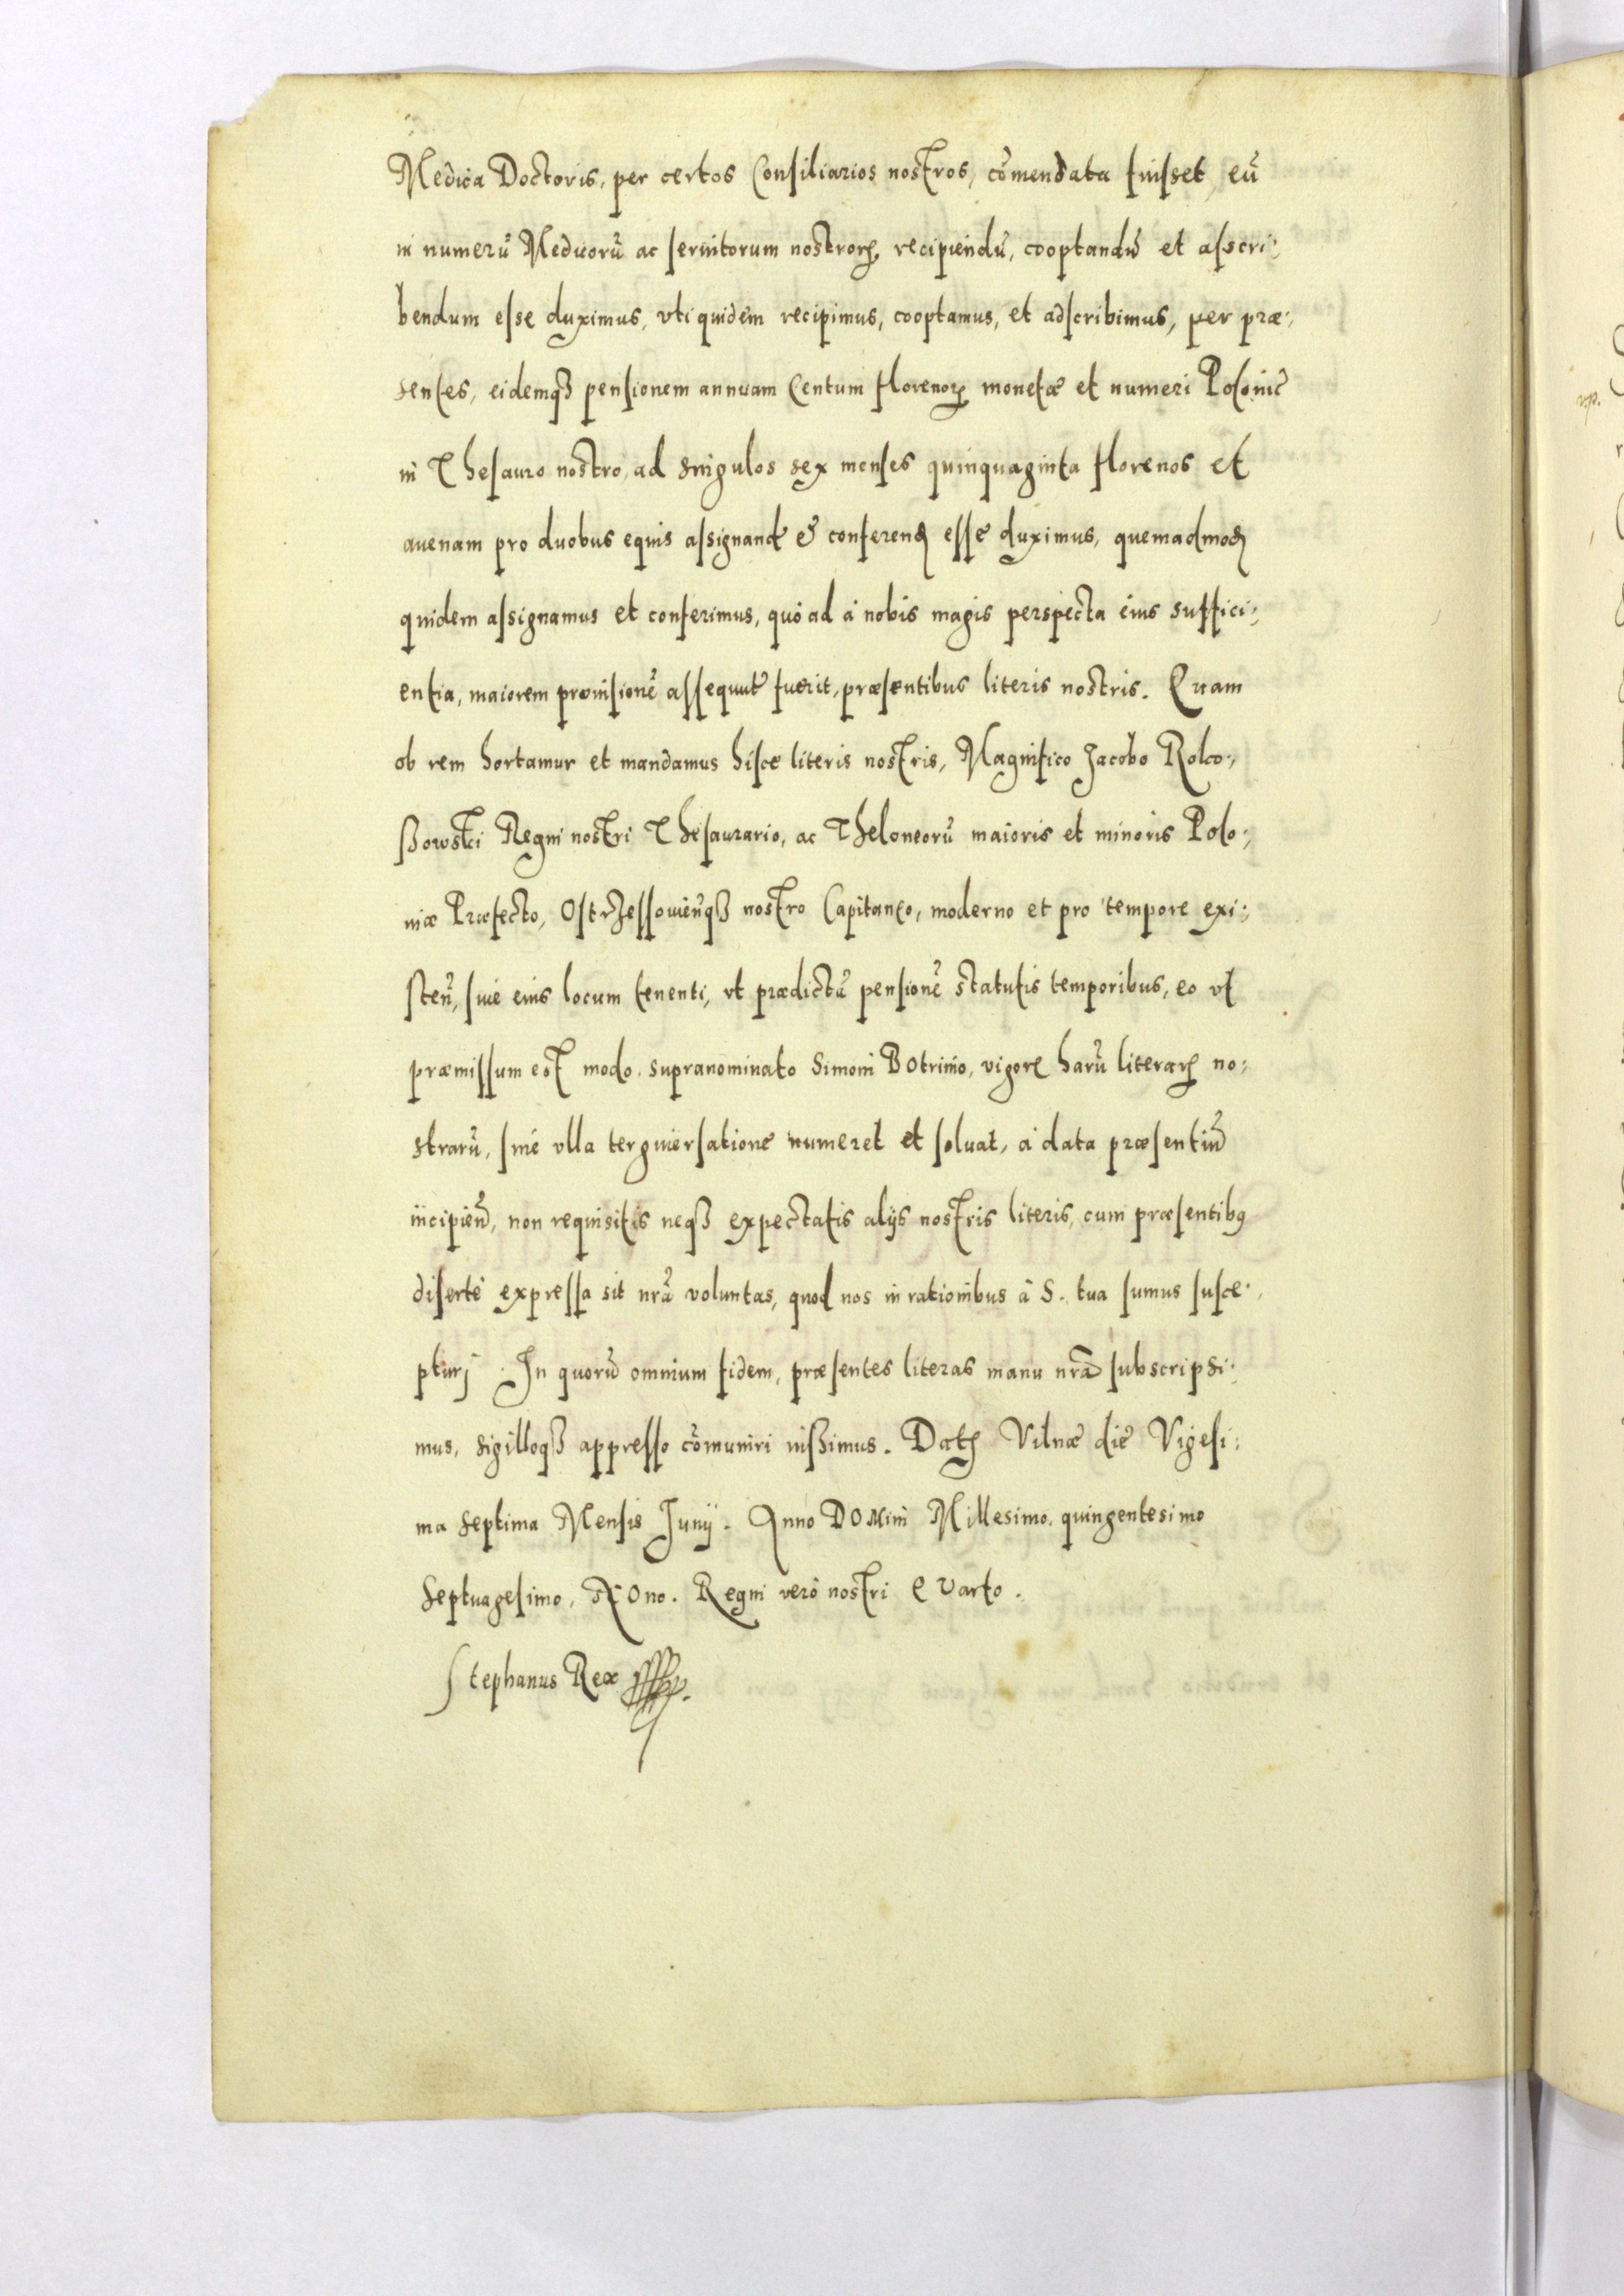 Medica Doctoris, per certos Consiliarios nostros, cõmendata fuisset, eũ
in numerũ Medicorũ ac seruitorum nostrorꝝ, recipiendũ, cooptandũ et asscri:
bendum esse duximus, vti quidem recipimus, cooptamus, et adscribimus, per præ:
sentes, eidemqꝫ pensionem annuam Centum florenorꝝ monetæ et numeri Polonic̃
in Thesauro nostro, ad singulos sex menses quinquaginta florenos et
auenam pro duobus equis assignand̃ & conferend̃ esse duximus, quemadmod̃
quidem assignamus et conferimus, quò ad à nobis magis perspecta eius suffici:
entia, maiorem prouisionẽ assequut̃ fuerit, præsentibus literis nostris. Quam
ob rem hortamur et mandamus hisce literis nostris, Magnifico Jacobo Roko:
ßowski Regni nostri Thesaurario, ac Theloneorũ maioris et minoris Polo:
niæ Præfecto, Ostrzessouieñqꝫ nostro Capitaneo, moderno et pro tempore exi:
steñ, siue eius locum tenenti, vt prædictã pensionẽ statutis temporibus, eo vt
præmissum est modo. supranominato Simoni Botrinio, vigore harũ literarꝝ no:
strarũ, sinè vlla terguiersatione numeret et soluat, à data præsentiũ
incipieñd, non requisitis neqꝫ expectatis alijs nostris literis, cum præsentibꝰ
disertè expressa sit nrã voluntas, quod nos in rationibus à S. tua sumus susce:
pturj. In quorũ omnium fidem, præsentes literas manu nrã subscripsi:
mus, sigilloqꝫ appresso cõmuniri iußimus. Datꝭ Vilnæ die Vigesi:
ma septima Mensis Junij. Anno DOMini Millesimo. quingentesimo
Septuagesimo, NOno. Regni verò nostri QVarto.
Stephanus Rex